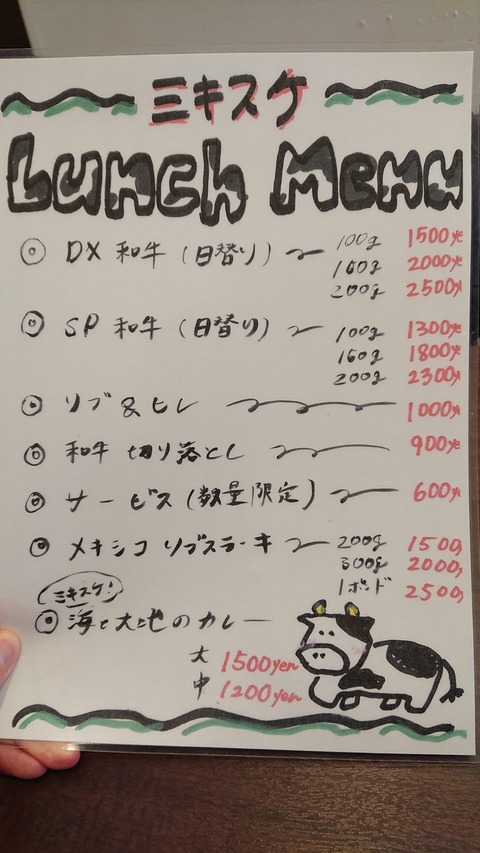 ミキスケ
Lunch Menu
◎ DX 和牛 (日替り) 100g 1500yen
150g 2000yen
200g 2500yen
◎ SP 和牛 (日替り) 100g 1300yen
150g 1800yen
200g 2300yen
◎ リブ & ヒレ 1000yen
◎ 和牛 切り落とし 900yen
◎ サービス (数量限定) 600yen
◎ メキシコ リブステーキ 200g 1500
300g 2000
1ポンド 2500
ミキスケ!
◎ 海と大地のカレー
大 1500yen
中 1200yen